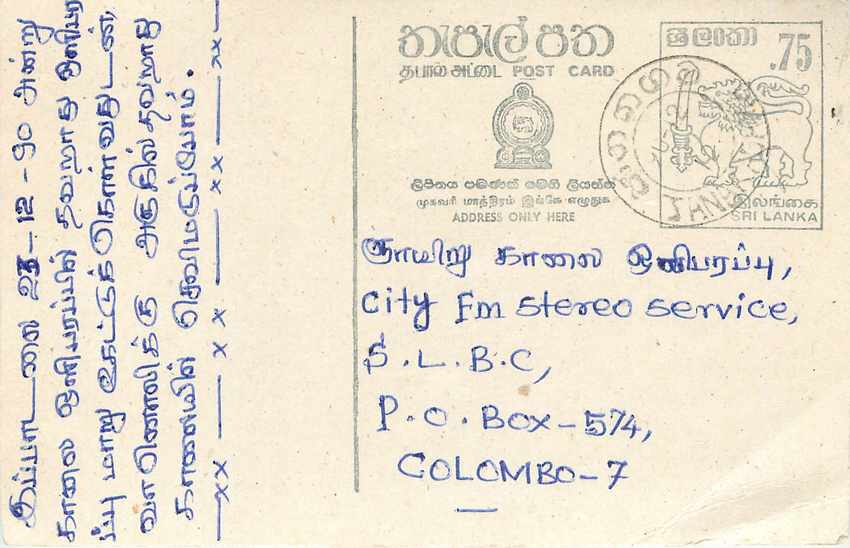 இப்பாடலை 23-12-90 அன்று
காலை ஒலிபரப்பில் தவறாது ஒலிபர
ப்பு மாறு கேட்டுக்கொள்வதுடன்,
வானொலிக்கு அருகில் தவறாது
காலையில் செவிமடுப்போம்.
xx — x — x x — xx — xx
තැපැල්පත
தபால் அட்டை POST CARD
ලිපිනය පමණක් මෙහි ලියන්න
முகவரி மாத்திரம் இங்கே எழுதுக
ADDRESS ONLY HERE
ශ්‍රී ලංකා
.75
இலங்கை
SRI LANKA
ஞாயிறு காலை ஒலிபரப்பு,
City Fm stereo service,
S.L.B.C,
P.O. Box-574,
COLOMBO-7